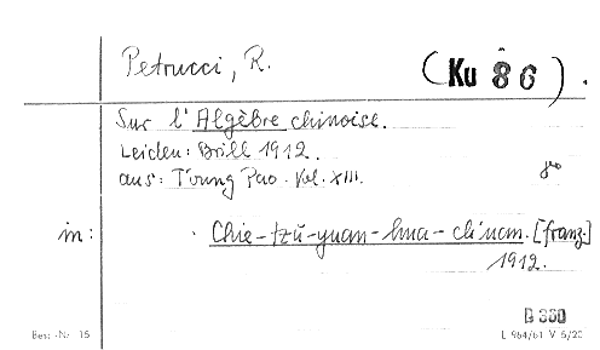 Petrucci, R.
(Ku 86).
Sur l'Algèbre chinoise.
Leiden: Brill 1912.
aus: T'oung Pao. Vol. XIII.
8°
in: Chie-tzŭ-yuan-hua-ch'uan. [franz.]
1912.
B 360
Best.-Nr. 15
L 964/61 V 5/20